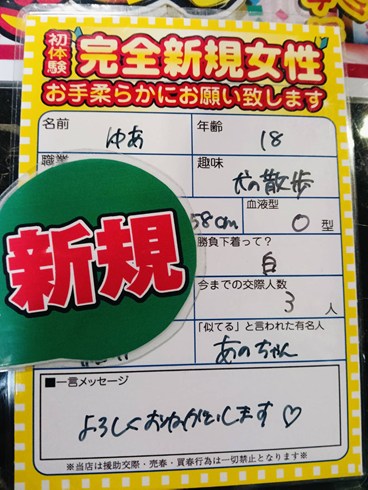 初体験 完全新規女性
お手柔らかにお願い致します
名前 ゆあ 年齢 18
職業 趣味 犬の散歩
58cm 血液型 O型
新規
勝負下着って? 白
今までの交際人数 3人
「似てる」と言われた有名人 あのちゃん
■一言メッセージ
よろしくおねがいします♡
※当店は援助交際・売春・買春行為は一切禁止となります※